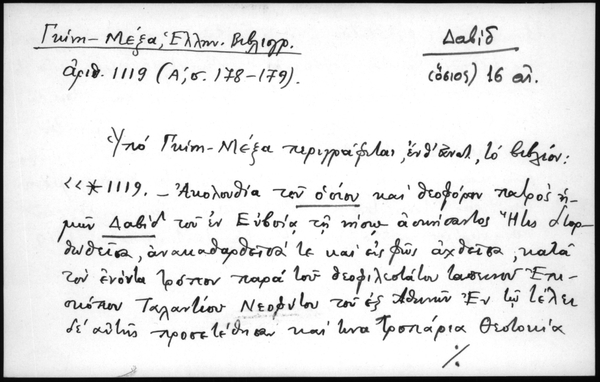 Γκίνη-Μέξα, Ἑλλην. Βιβλιογρ.
Δαβὶδ
ἀριθ. 1119 (Α', σ. 178-179).
(ὅσιος) 16 αἰ.
Ὑπὸ Γκίνη-Μέξα περιγράφεται, ἐνθ' ἀνωτ., τὸ βιβλίον:
<<*1119. - Ἀκολουθία τοῦ ὁσίου καὶ θεοφόρου πατρὸς ἡ-
μῶν Δαβὶδ τοῦ ἐν Εὐβοίᾳ τῇ νήσῳ ἀσκήσαντος Ἥτις διορ-
θωθεῖσα, ἀνακαθαρθεῖσά τε καὶ εἰς φῶς ἀχθεῖσα, κατὰ
τὸν ἐνόντα τρόπον παρὰ τοῦ θεοφιλεστάτου ταπεινοῦ Ἐπι-
σκόπου Ταλαντίου Νεοφύτου τοῦ ἐξ Ἀθηνῶν Ἐν τῷ τέλει
δὲ αὐτῆς προσετέθησαν καὶ τινα Τροπάρια Θεοτοκία
./.